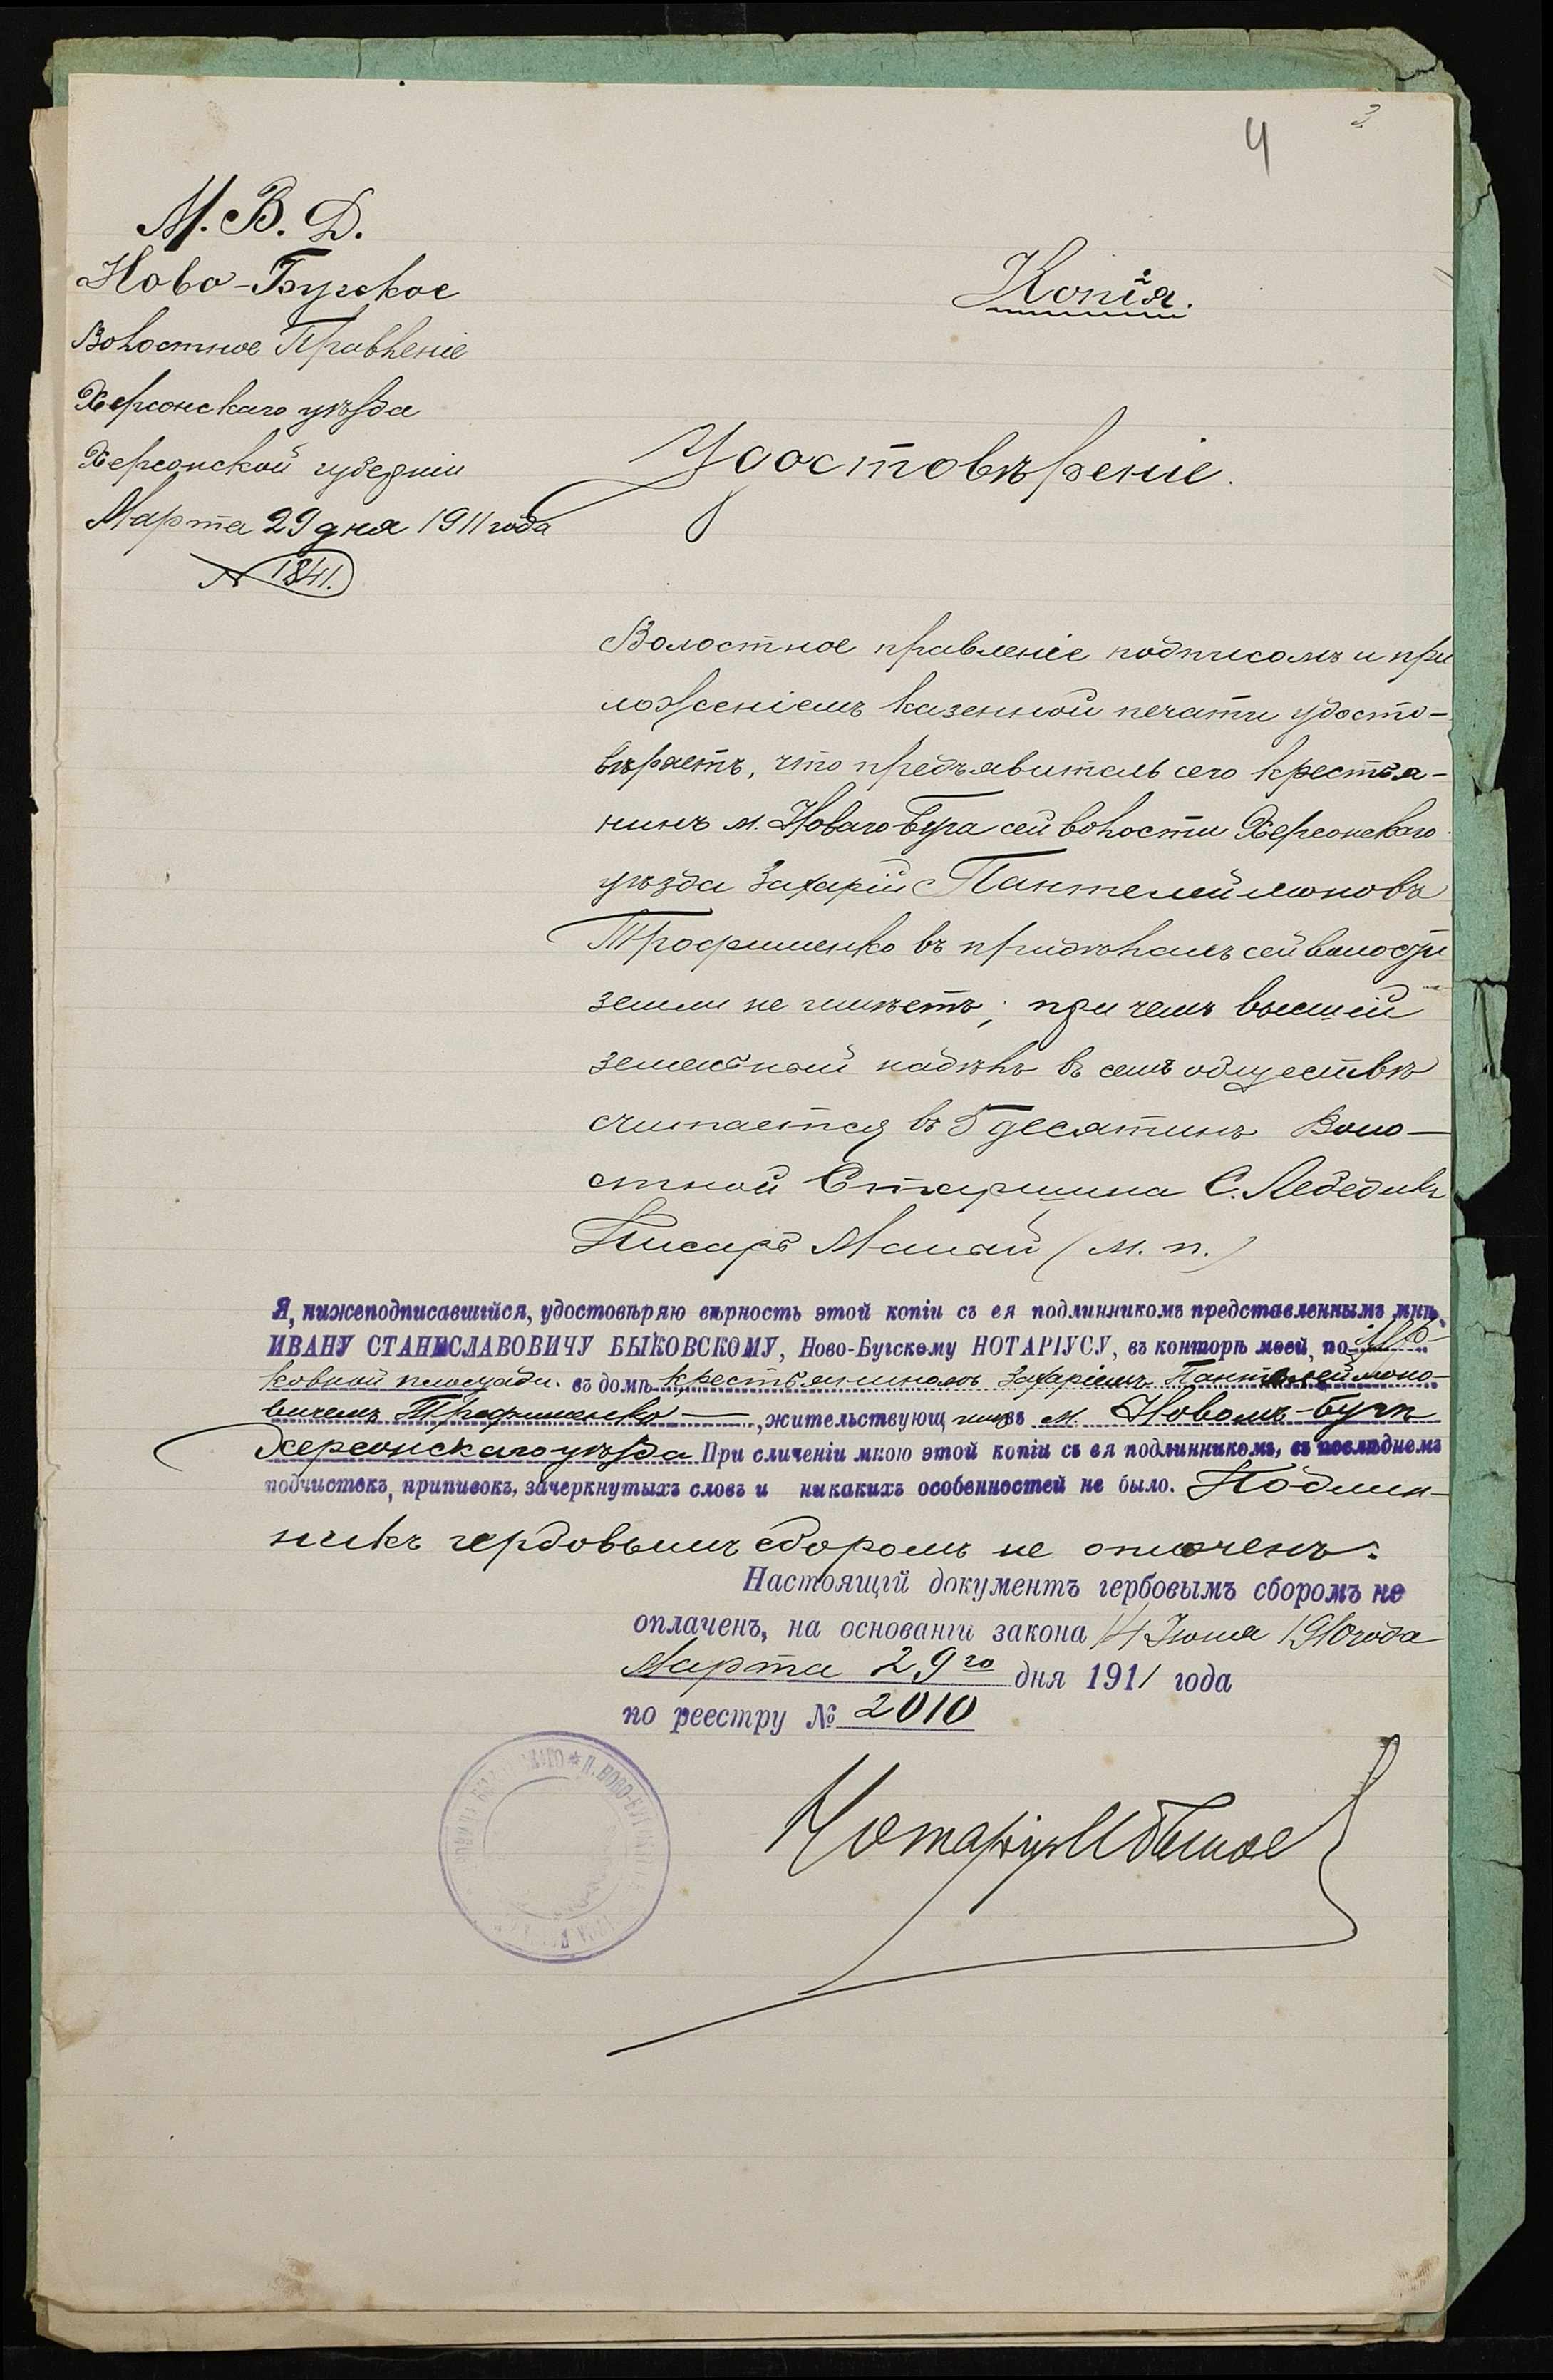 3
4
М. В. Д.
Ново-Бугское
Волостное Правленіе
Херсонскаго уѣзда
Херсонской губерніи
Марта 29 дня 1911 года
№ 1841.
Копія.
Удостовѣреніе.
Волостное правленіе подписомъ и при
ложеніемъ казенной печати удосто-
вѣряетъ, что предъявитель сего крестья-
нинъ м. Новаго Буга сей волости Херсонскаго
уѣзда Захарій Пантелеймоновъ
Трофименко въ придѣлахъ сей волости
земли не имѣетъ; при чемъ высшій
земельный надѣлъ въ семъ обществѣ
считается въ 5 десятинъ Воло-
стной Старшина С. Лебедивъ
Писарь (м. п.)
Я, нижеподписавшійся, удостовѣряю вѣрность этой копіи съ ея подлинникомъ представленнымъ мнѣ,
ИВАНУ СТАНИСЛАВОВИЧУ БЫКОВСКОМУ, Ново-Бугскому НОТАРІУСУ, въ конторѣ моей, по
ковной площади. въ домѣ крестьяниномъ Захаріемъ Пантелеймоно-
вичемъ Трофименко —, жительствующимъ въ м. Новомъ-Бугѣ
Херсонскаго уѣзда При сличеніи мною этой копіи съ ея подлинникомъ, въ послѣднемъ
подчистокъ, приписокъ, зачеркнутыхъ словъ и никакихъ особенностей не было. Подлин-
никъ гербовымъ сборомъ не оплоченъ.
Настоящій документъ гербовымъ сборомъ не
оплаченъ, на основаніи закона 14 Іюня 1910 года
Марта 29го дня 1911 года
по реестру № 2010
Нотаріусъ